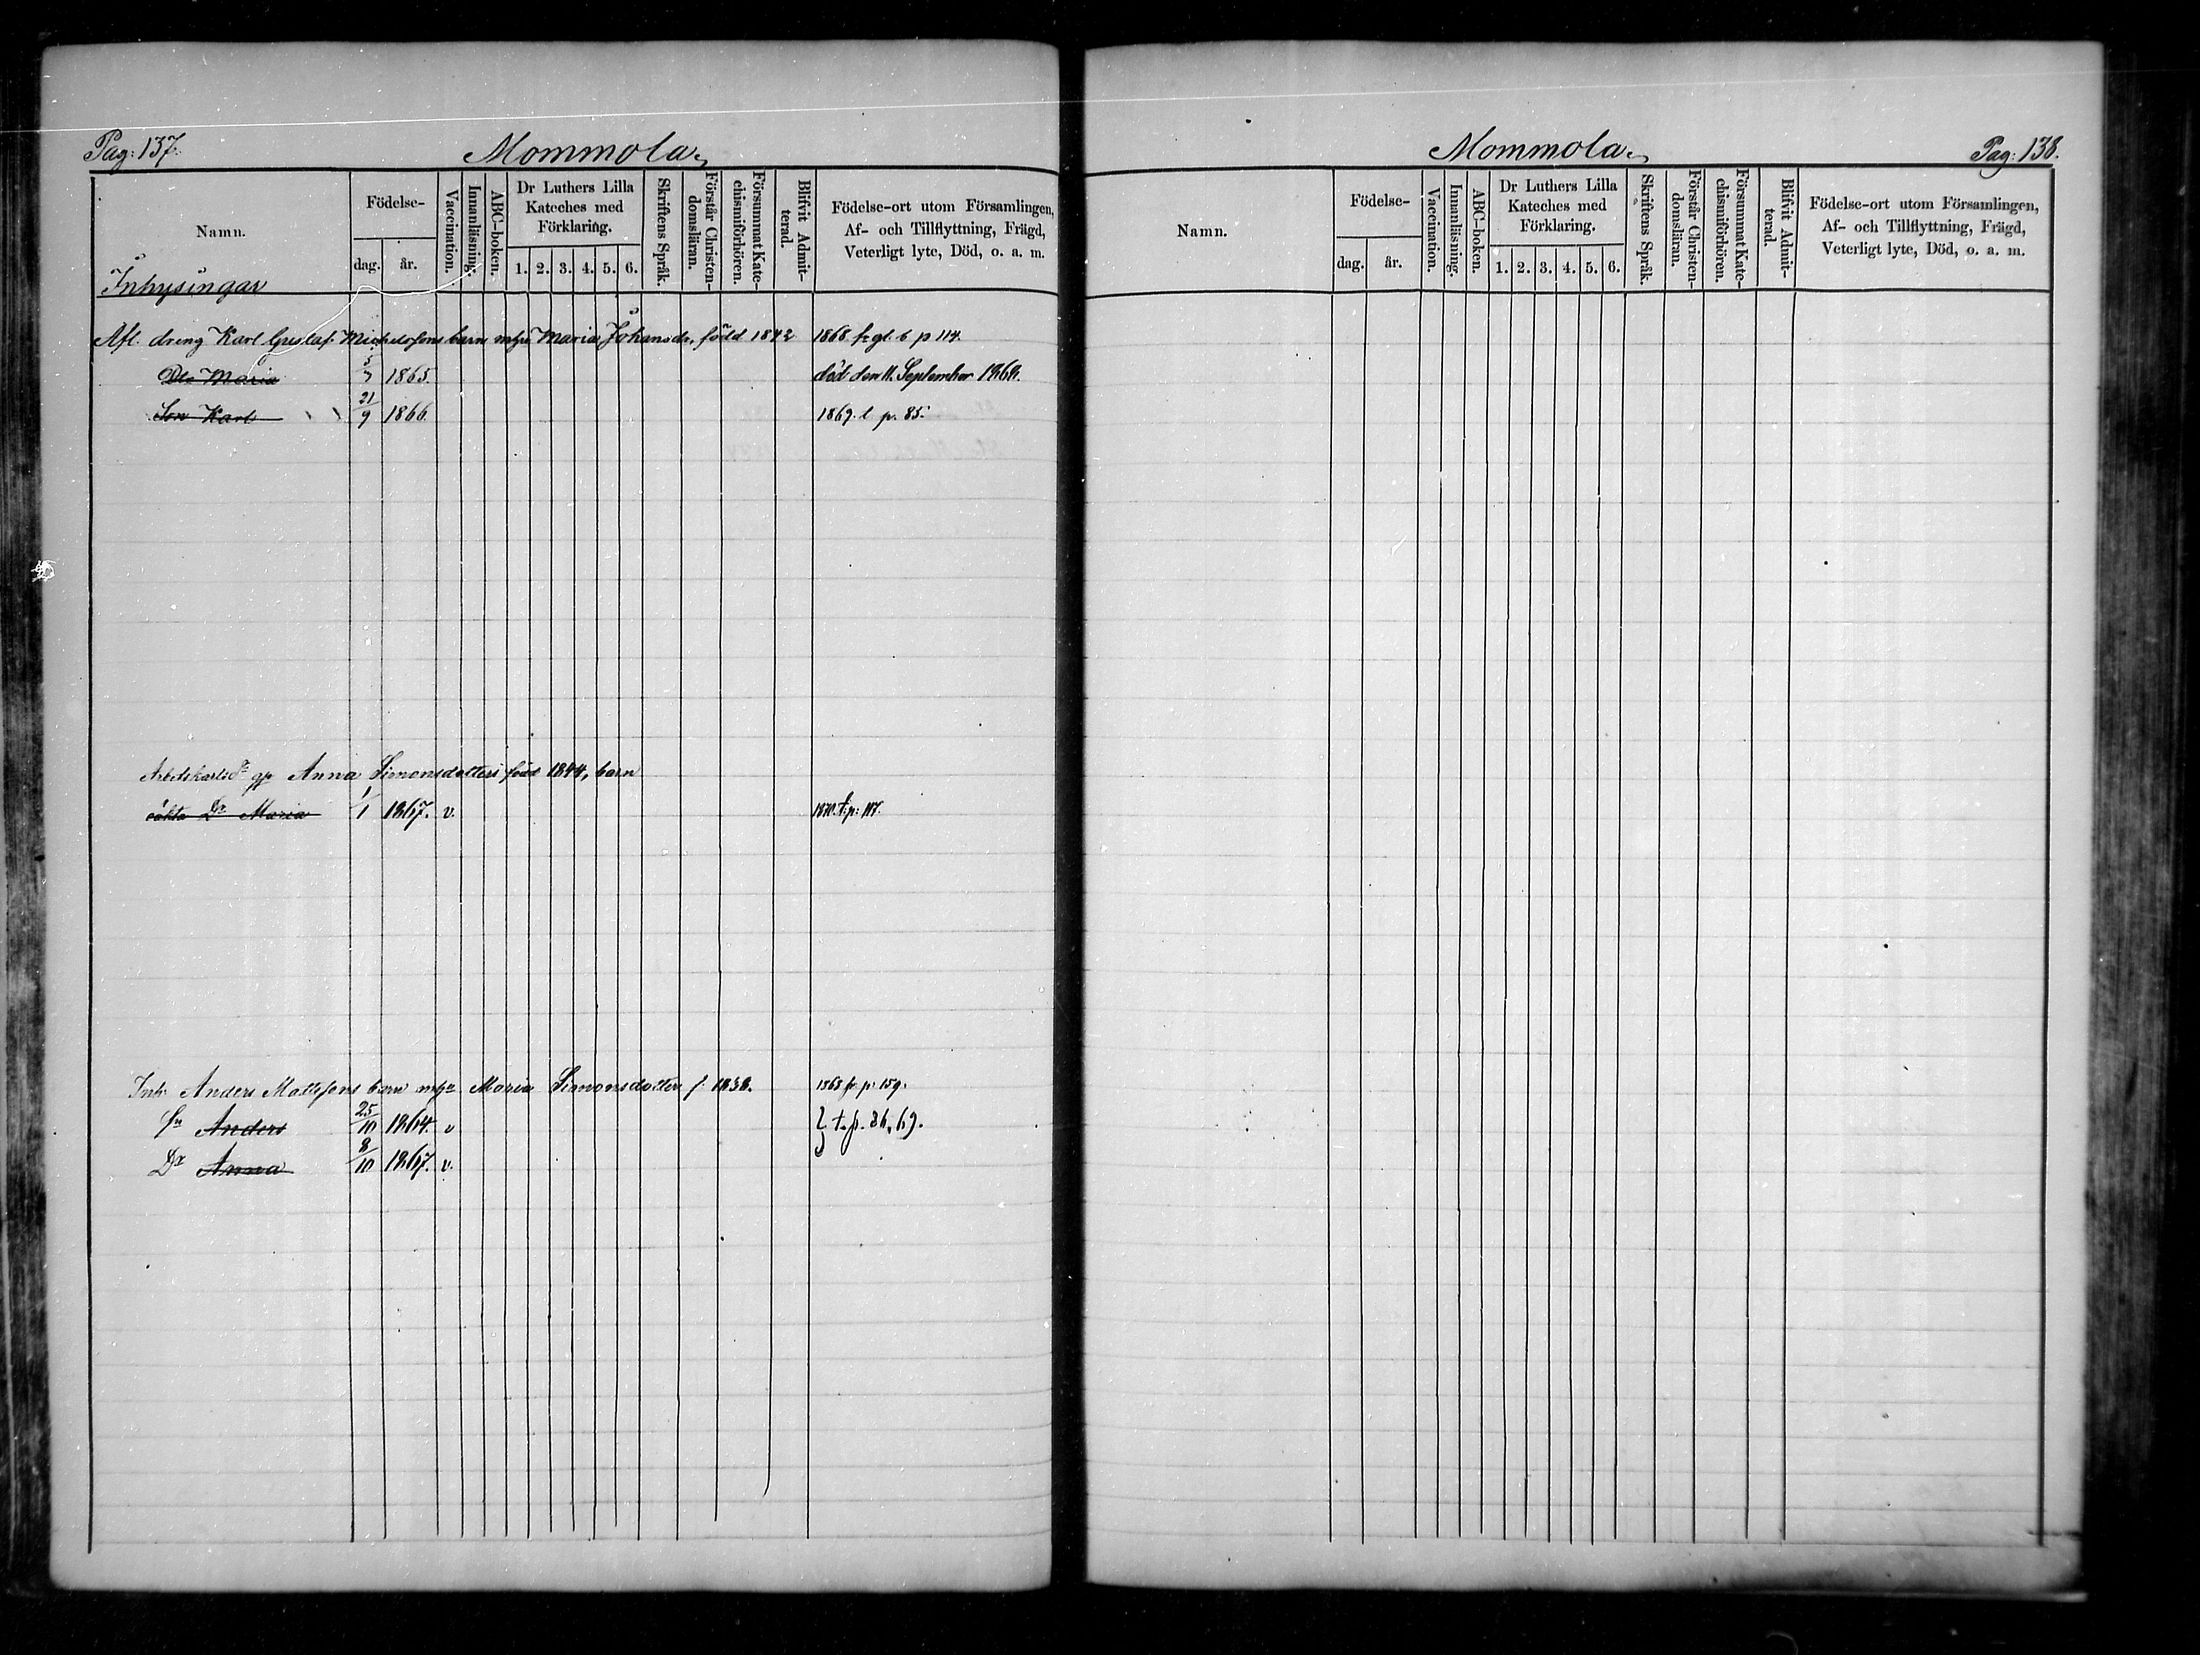 Pag: 137.
Mommola.
Namn.
Födelse-
dag.
år.
Vaccination.
Innanläsning.
ABC-boken.
Dr Luthers Lilla
Kateches med
Förklaring.
1. 2. 3. 4. 5. 6.
Skriftens Språk.
Förstår Christen-
domsläran.
Försummat Kate-
chismiförhören.
Blifvit Admit-
terad.
Födelse-ort utom Församlingen,
Af- och Tillflyttning, Frägd,
Veterligt lyte, Död, o. a. m.
Inhysingar
Afl. dreng Karl Gustaf Michelssons barn m hu Maria Johansdr, född 1842 1868 fr gl. b p 114
Dtr Maria 5/7 1865. död den 11. September 1868.
Son Karl 21/9 1866. 1869. t p. 85.
Arbetskarlsdr gp Anna Simonsdotters född 1844, barn
oäkta Dr Maria 1/1 1867. v. 1870. t. p: 117.
Inh. Anders Mattssons barn m hu Maria Simonsdotter f. 1838. 1868 fr p: 159.
Sn Anders 25/10 1864. v } t. p. 86, 69.
Dr Anna 8/10 1867. v.
Mommola.
Pag: 138.
Namn.
Födelse-
dag.
år.
Vaccination.
Innanläsning.
ABC-boken.
Dr Luthers Lilla
Kateches med
Förklaring.
1. 2. 3. 4. 5. 6.
Skriftens Språk.
Förstår Christen-
domsläran.
Försummat Kate-
chismiförhören.
Blifvit Admit-
terad.
Födelse-ort utom Församlingen,
Af- och Tillflyttning, Frägd,
Veterligt lyte, Död, o. a. m.